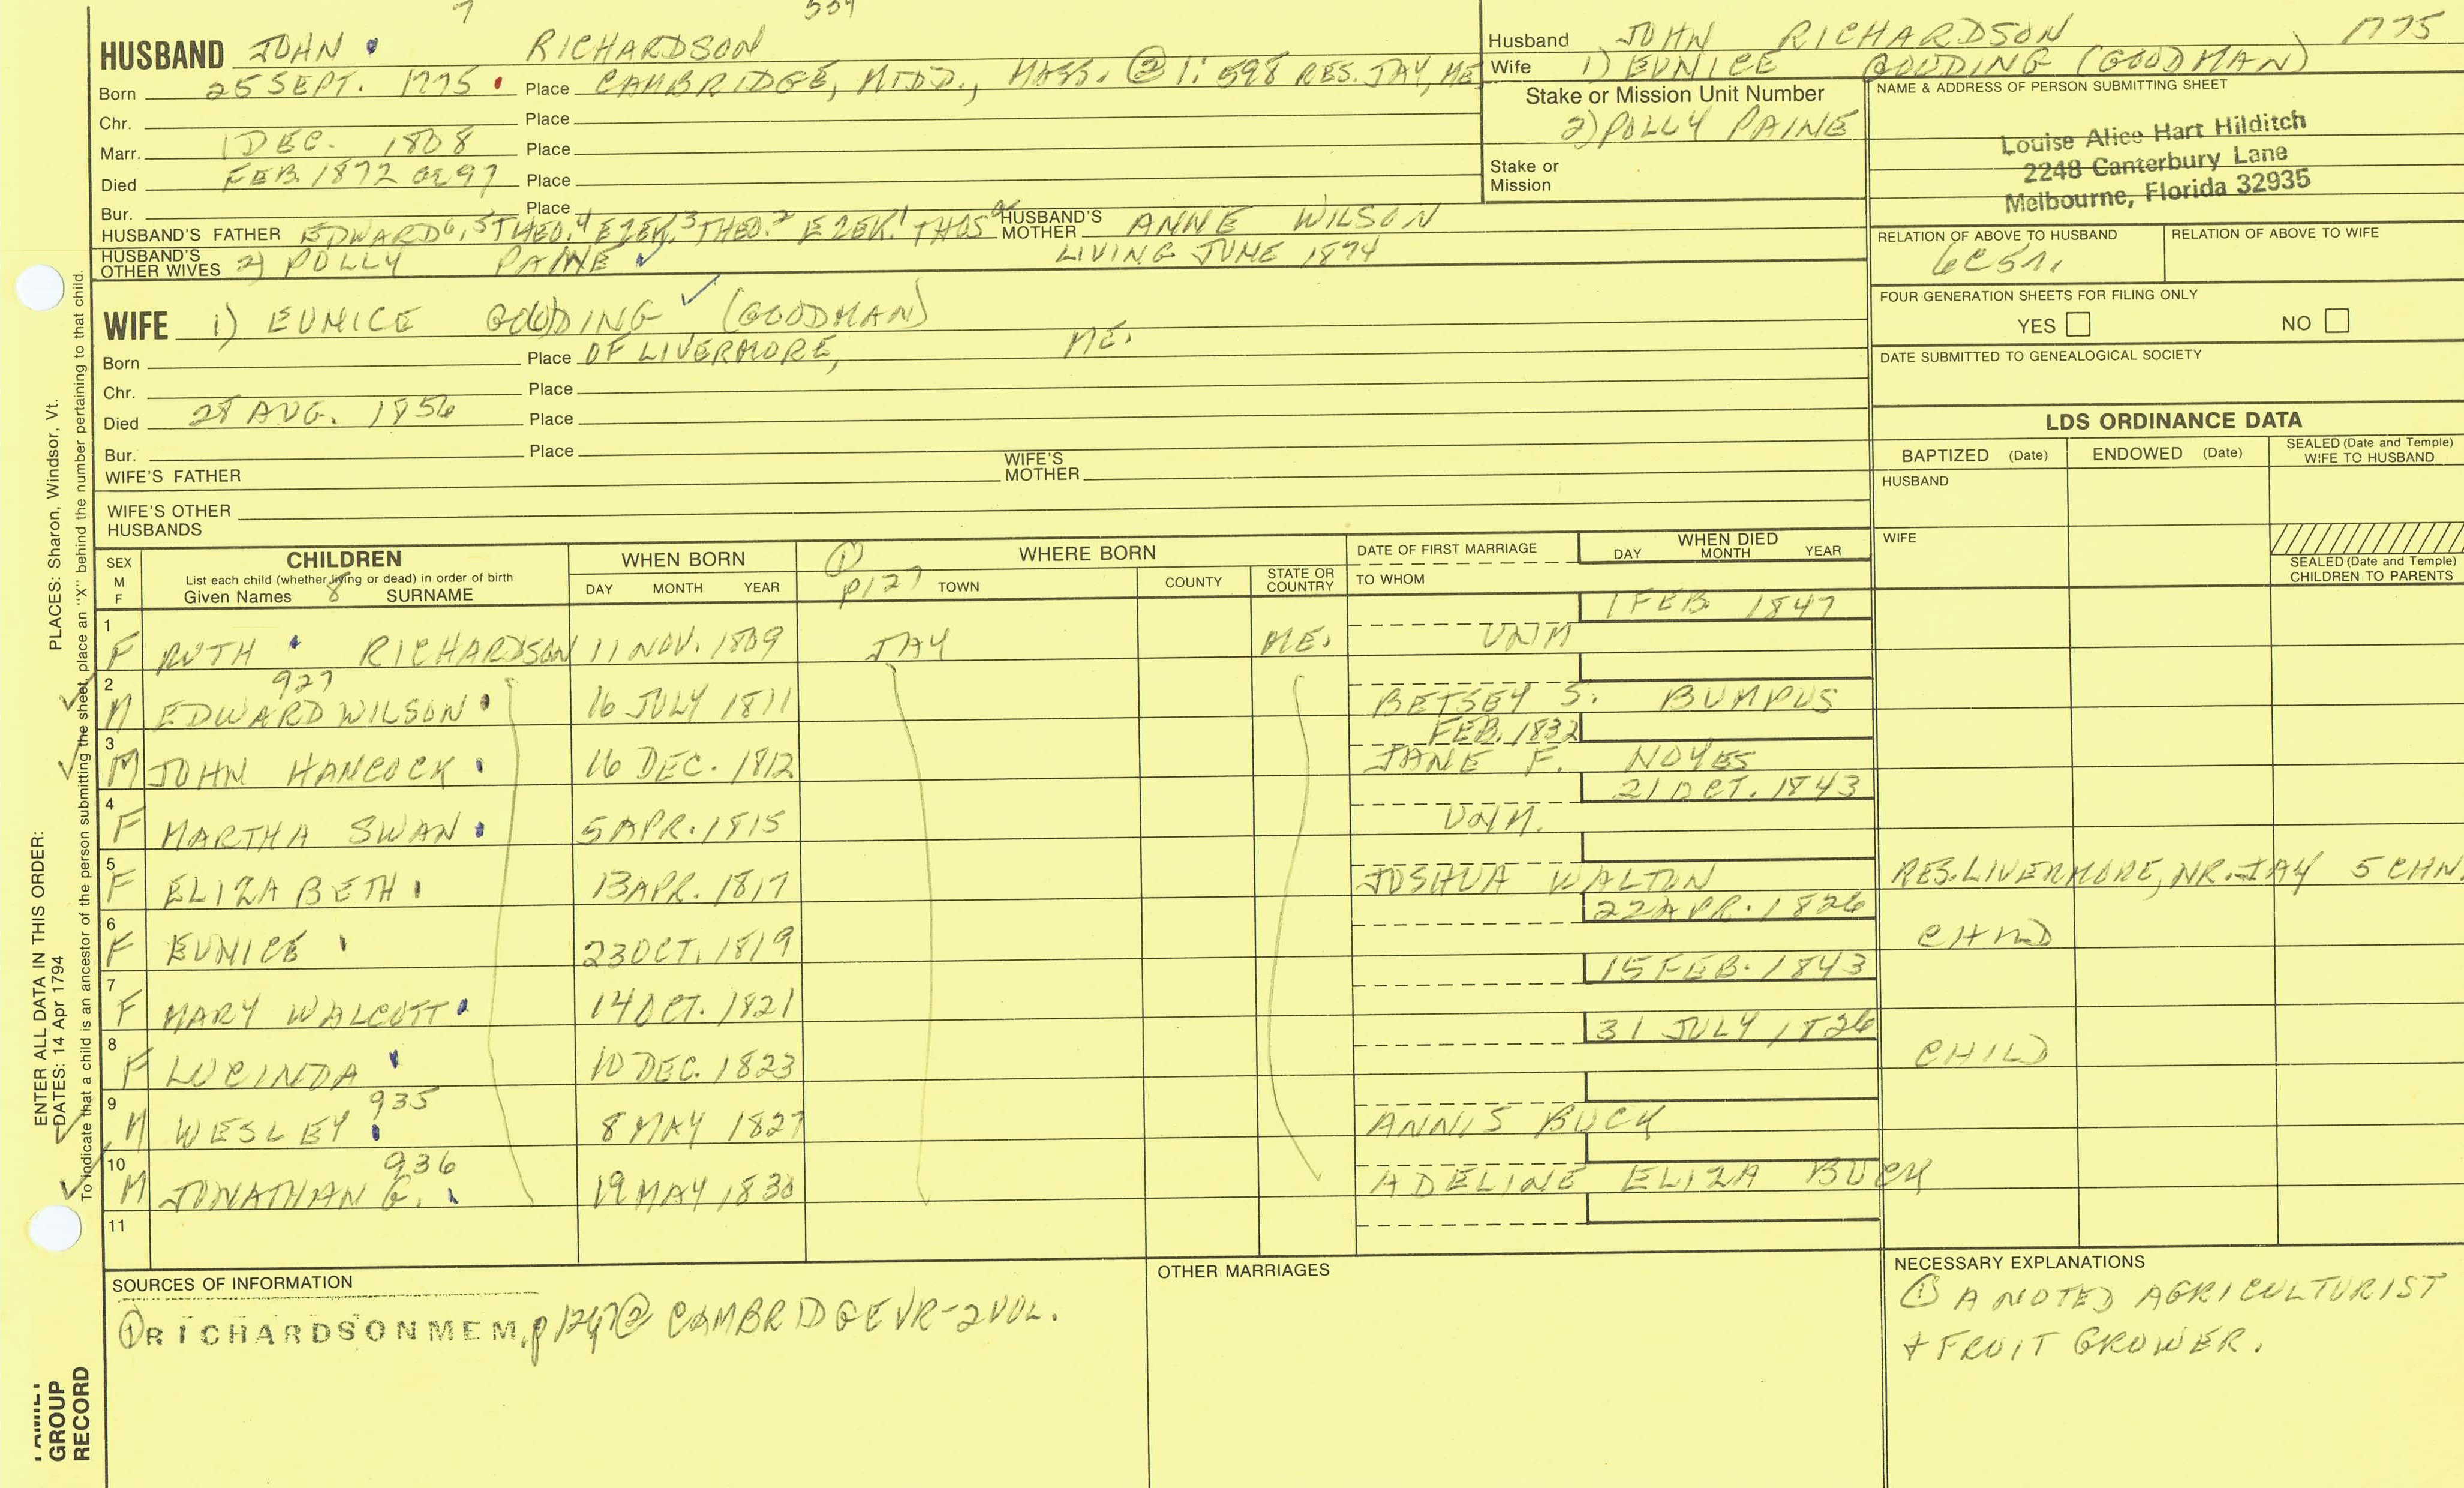 7 554
HUSBAND JOHN RICHARDSON
Born 25 SEPT. 1775 Place CAMBRIDGE, MIDD., MASS. ② 1: 598 RES. JAY, ME.
Chr. Place
Marr. 1 DEC. 1808 Place
Died FEB. 1872 AE 97 Place
Bur. Place
HUSBAND'S FATHER EDWARD 6, 5 THEO, 4 EZEK, 3 THEO. 2 EZEK. 1 THOS HUSBAND'S MOTHER ANNE WILSON
HUSBAND'S OTHER WIVES 2) POLLY PAINE LIVING JUNE 1874
WIFE 1) EUNICE GOUDING (GOODMAN)
Born Place OF LIVERMORE, ME.
Chr. Place
Died 28 AUG. 1856 Place
Bur. Place
WIFE'S FATHER WIFE'S MOTHER
WIFE'S OTHER HUSBANDS
Husband JOHN RICHARDSON 1775
Wife 1) EUNICE GOUDING (GOODMAN)
Stake or Mission Unit Number
2) POLLY PAINE
Stake or Mission
NAME & ADDRESS OF PERSON SUBMITTING SHEET
Louise Alice Hart Hilditch
2248 Canterbury Lane
Melbourne, Florida 32935
RELATION OF ABOVE TO HUSBAND RELATION OF ABOVE TO WIFE
6C5r.
FOUR GENERATION SHEETS FOR FILING ONLY
YES NO
DATE SUBMITTED TO GENEALOGICAL SOCIETY
LDS ORDINANCE DATA
BAPTIZED (Date) ENDOWED (Date) SEALED (Date and Temple) WIFE TO HUSBAND
HUSBAND
WIFE
SEALED (Date and Temple) CHILDREN TO PARENTS
SEX M F
CHILDREN
List each child (whether living or dead) in order of birth
Given Names 8 SURNAME
WHEN BORN
DAY MONTH YEAR
① p127
WHERE BORN
TOWN COUNTY STATE OR COUNTRY
DATE OF FIRST MARRIAGE
TO WHOM
WHEN DIED
DAY MONTH YEAR
1 F RUTH RICHARDSON 11 NOV. 1809 JAY ME. UNM 1 FEB. 1847
927
2 M EDWARD WILSON 16 JULY 1811 BETSEY S. BUMPUS
3 M JOHN HANCOCK 16 DEC. 1812 FEB. 1832 JANE F. NOYES
4 F MARTHA SWAN 5 APR. 1815 UNM. 21 OCT. 1843
5 F ELIZABETH 13 APR. 1817 JOSHUA WALTON RES. LIVERMORE, NR. JAY 5 CHN.
6 F EUNICE 23 OCT. 1819 22 APR. 1826 CHILD
7 F MARY WALCOTT 14 OCT. 1821 15 FEB. 1843
8 F LUCINDA 10 DEC. 1823 31 JULY 1826 CHILD
935
9 M WESLEY 8 MAY 1827 ANNIS BUCK
936
10 M JONATHAN G. 19 MAY 1830 ADELINE ELIZA BUCK
11
SOURCES OF INFORMATION
① RICHARDSON MEM. p 127 ② CAMBRIDGE VR-2 VOL.
OTHER MARRIAGES
NECESSARY EXPLANATIONS
① A NOTED AGRICULTURIST
+ FRUIT GROWER.
ENTER ALL DATA IN THIS ORDER:
DATES: 14 Apr 1794 PLACES: Sharon, Windsor, Vt.
To indicate that a child is an ancestor of the person submitting the sheet, place an "X" behind the number pertaining to that child.
FAMILY
GROUP
RECORD